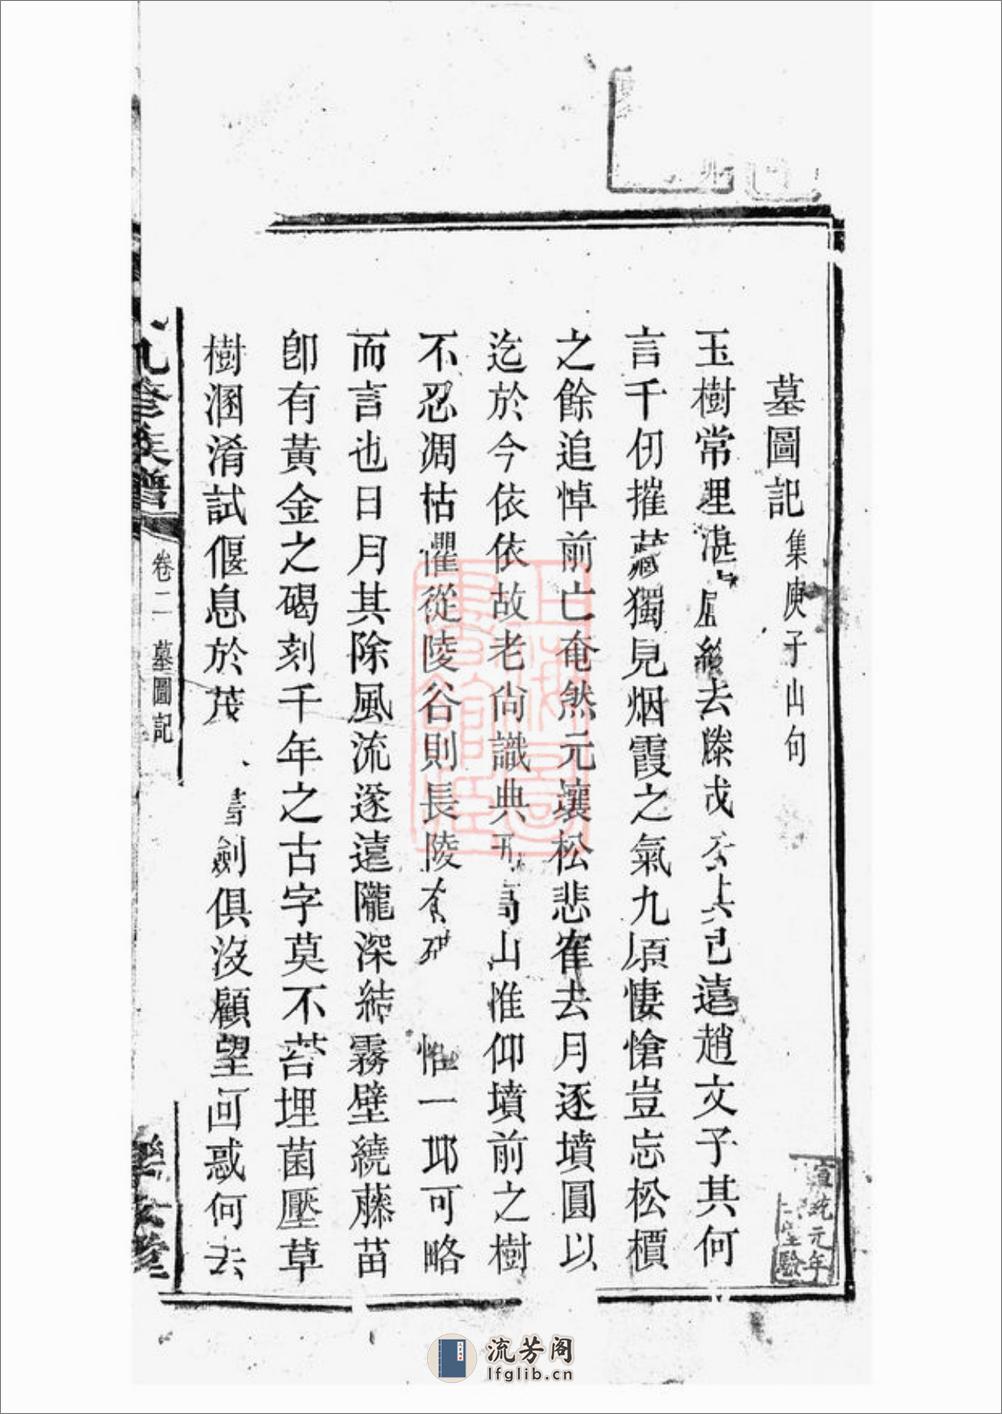 墓圖記 集庾子山句
玉樹常埋湛去滕其已遠趙文子其何
言千仞摧藏獨見烟霞之氣九原悽愴豈忘松檟
之餘追悼前亡奄然元壤松悲雀去月逐墳圓以
迄於今依依故老尚識典高山惟仰墳前之樹
不忍凋枯懼從陵谷則長陵惟一邙可略
而言也日月其除風流遂遠隴深結霧壁繞藤苗
卽有黃金之碣刻千年之古字莫不苔埋菌壓草
樹溷淆試偃息於茂書劍俱沒顧望回惑何去
九修族譜
卷二 墓圖記
宣統元年
流芳阁
lfglib.cn